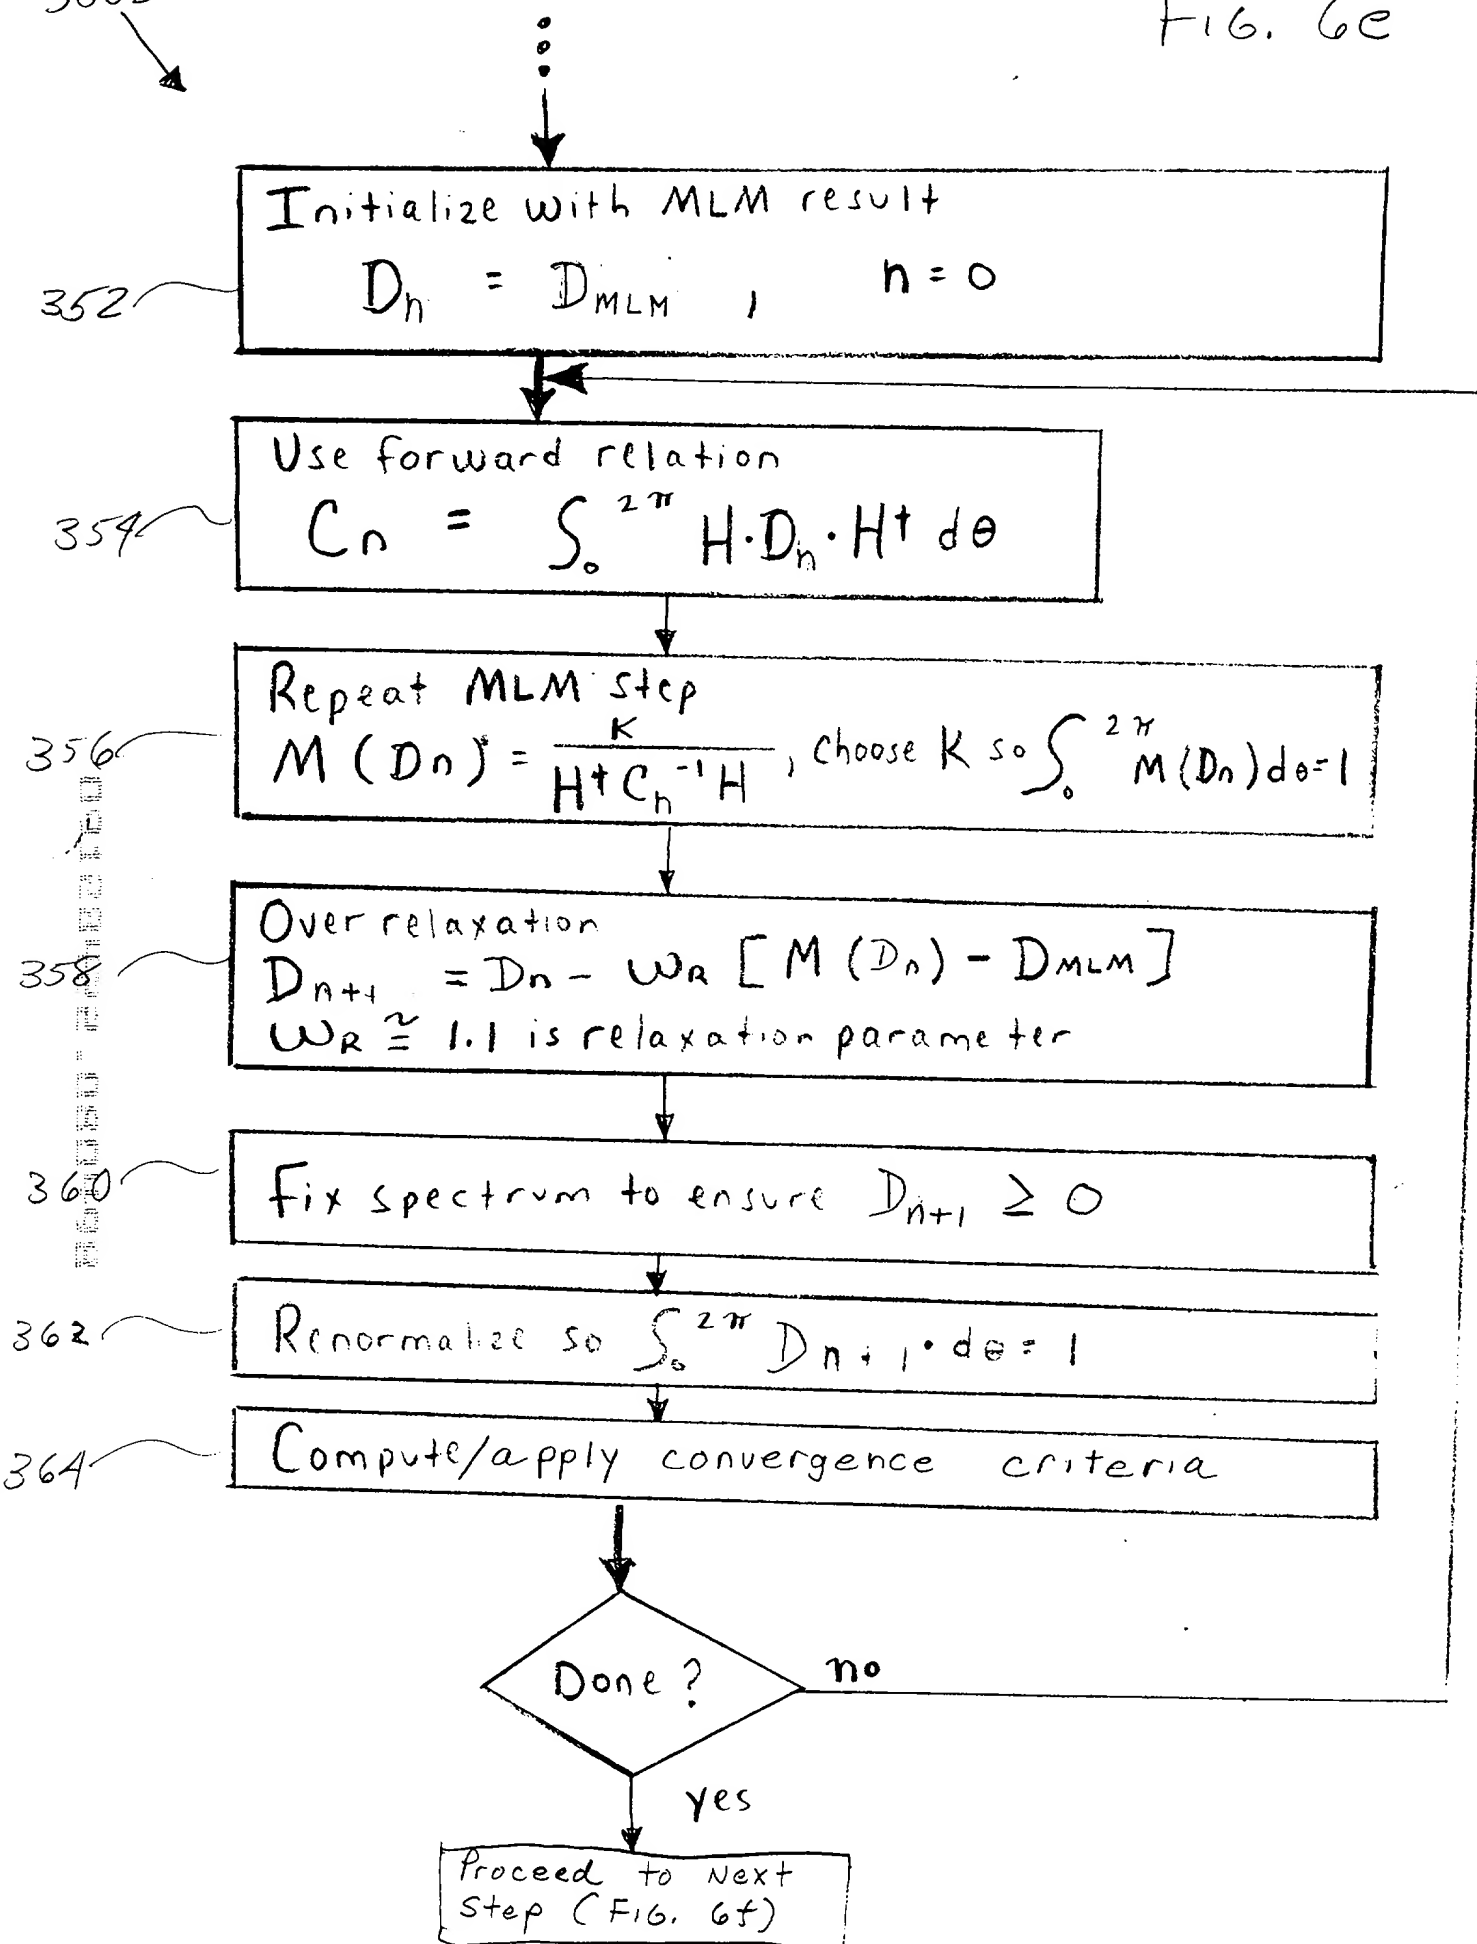 FIG. 6e
Initialize with MLM result
352
Dn = DMLM , n = 0
Use forward relation
354
Cn = ∫₀^2π H·Dn·H† dθ
Repeat MLM step
356
M (Dn) = K / H† Cn⁻¹ H , choose K so ∫₀^2π M(Dn) dθ = 1
Over relaxation
358
Dn+1 = Dn - ωR [ M (Dn) - DMLM ]
ωR ≅ 1.1 is relaxation parameter
360
Fix spectrum to ensure Dn+1 ≥ 0
362
Renormalize so ∫₀^2π Dn+1 · dθ = 1
364
Compute/apply convergence criteria
Done ?
no
yes
Proceed to Next
Step (FIG. 6f)